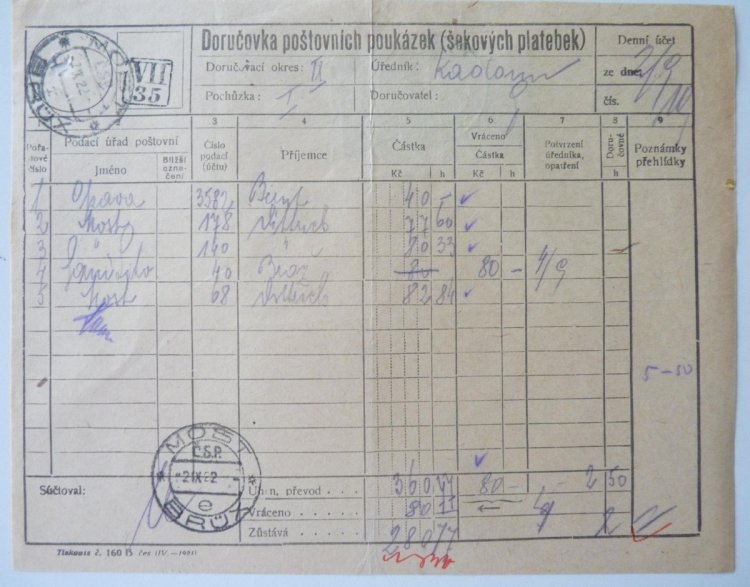 Doručovka poštovních poukázek (šekových platebek)
Denní účet
Doručovací okres: II
Úředník:
ze dne: 2/9
Pochůzka: I
Doručovatel:
čís.
MOST
Č.S.P.
BRÜX
VII
35
Pořadové číslo
Podací úřad poštovní
Jméno
Bližší označení
3
Číslo podací (účtu)
4
Příjemce
5
Částka
Kč h
6
Vráceno
Částka
Kč h
7
Potvrzení úředníka, opatření
8
Doručovné
h
9
Poznámky přehlídky
1 Opava 3582 40 -
2 Mosty 178 Dittrich 77 60
3 " 140 " 80 33
4 40 80 80 - 4/9
5 Most 68 Dittrich 82 84
5-50
MOST
Č.S.P.
-2IX22
e
BRÜX
Súčtoval:
Úhrn, převod . . . . 80 - 2 50
Vráceno . . . .
Zůstává . . . . 280 77
Tiskopis č. 160 B čes (IV.—1921)